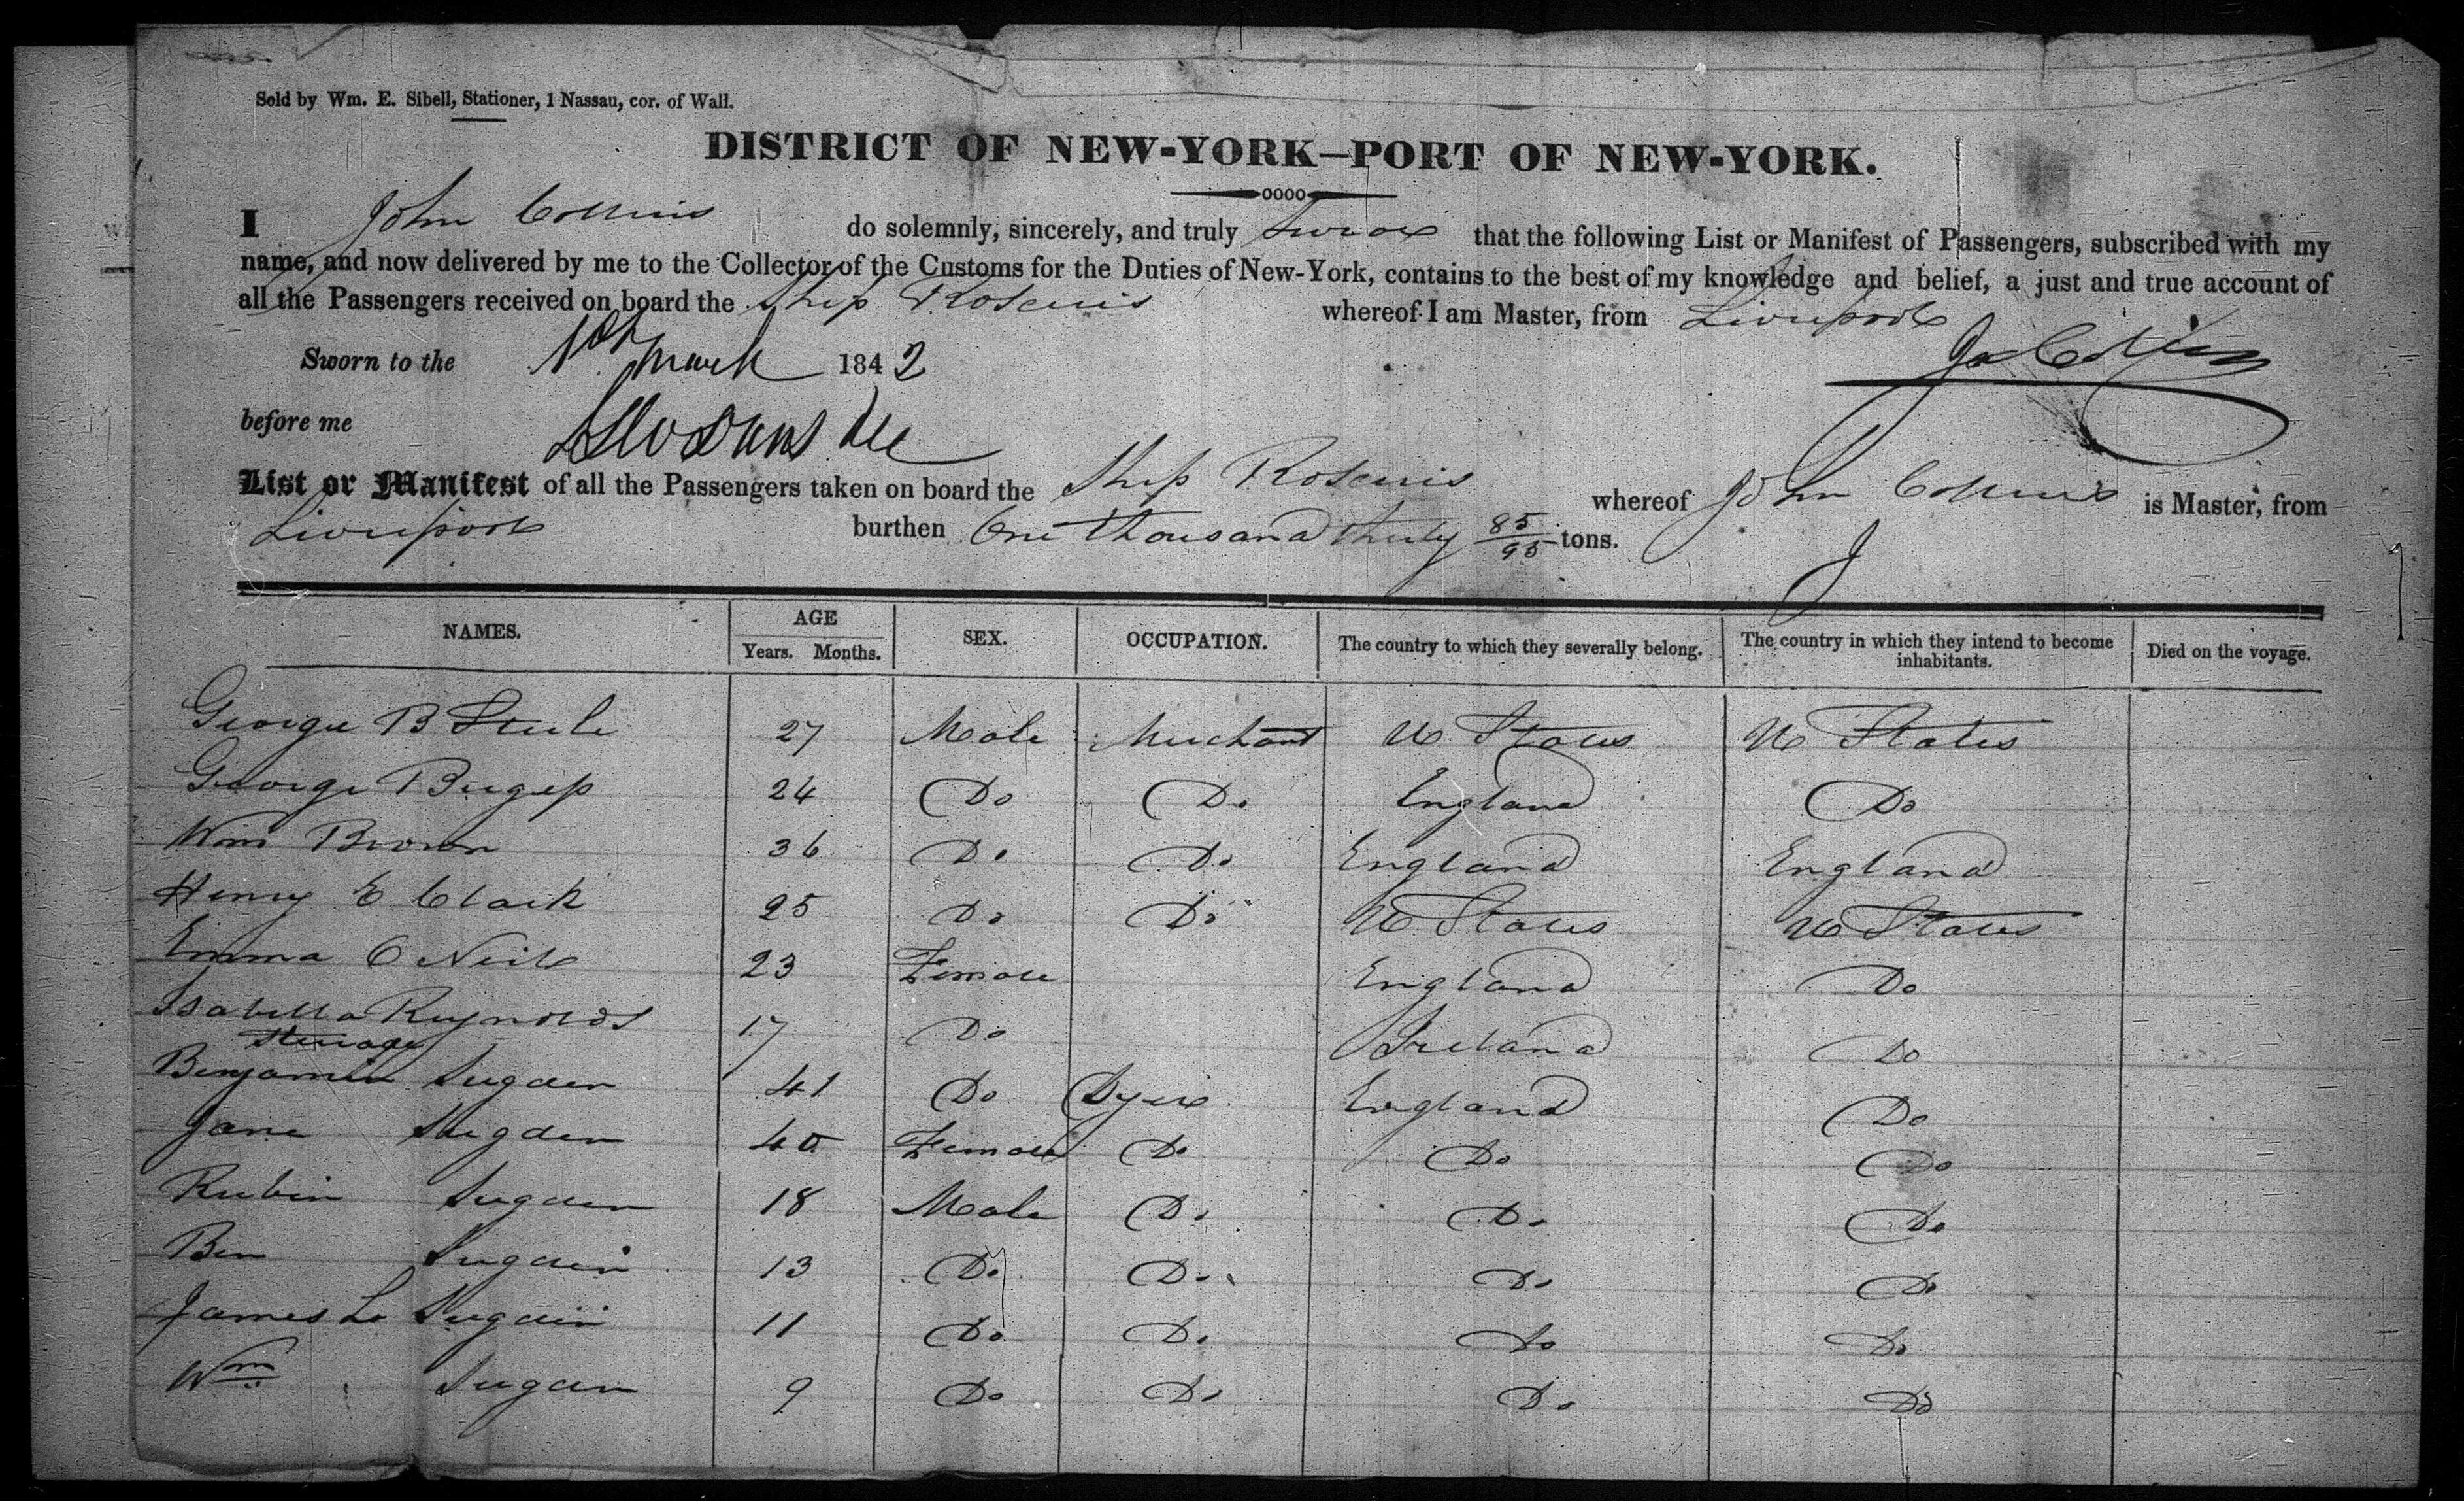 Sold by Wm. E. Sibell, Stationer, 1 Nassau, cor. of Wall.
DISTRICT OF NEW-YORK—PORT OF NEW-YORK.
I John Collins do solemnly, sincerely, and truly swear that the following List or Manifest of Passengers, subscribed with my
name, and now delivered by me to the Collector of the Customs for the Duties of New-York, contains to the best of my knowledge and belief, a just and true account of
all the Passengers received on board the Ship Roscius whereof I am Master, from Liverpool
Sworn to the 1st March 1842 Jn Collins
before me
List or Manifest of all the Passengers taken on board the Ship Roscius whereof John Collins is Master, from
Liverpool burthen One thousand thirty 85/95 tons.
NAMES. AGE Years. Months. SEX. OCCUPATION. The country to which they severally belong. The country in which they intend to become inhabitants. Died on the voyage.
George B Steele 27 Male Merchant U States U States
George 24 Do Do England Do
Wm Brown 36 Do Do England England
Henry E Clark 25 Do Do U States U States
Emma O Neil 23 Female England Do
Isabella Reynolds 17 Do Ireland Do
Steerage
Benjamin Sugden 41 Do Dyer England Do
Jane Sugden 40 Female Do Do Do
Rubin Sugden 18 Male Do Do Do
Ben Sugden 13 Do Do Do Do
James L Sugden 11 Do Do Do Do
Wm Sugden 9 Do Do Do Do